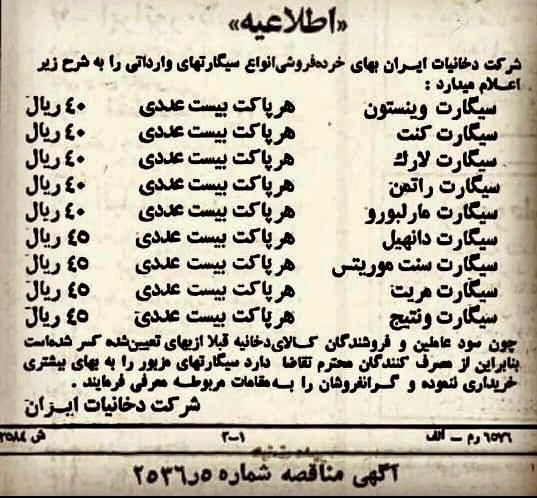 «اطلاعیه»
شرکت دخانیات ایران بهای خرده‌فروشی انواع سیگارتهای وارداتی را به شرح زیر
اعلام میدارد :
سیگارت وینستون هر پاکت بیست عددی ٤٠ ریال
سیگارت کنت هر پاکت بیست عددی ٤٠ ریال
سیگارت لارك هر پاکت بیست عددی ٤٠ ریال
سیگارت راتمن هر پاکت بیست عددی ٤٠ ریال
سیگارت مارلبورو هر پاکت بیست عددی ٤٠ ریال
سیگارت دانهیل هر پاکت بیست عددی ٤٥ ریال
سیگارت سنت موریتس هر پاکت بیست عددی ٤٥ ریال
سیگارت مریت هر پاکت بیست عددی ٤٥ ریال
سیگارت ونتیج هر پاکت بیست عددی ٤٥ ریال
چون سود عاملین و فروشندگان کالای دخانیه قبلا ازبهای تعیین‌شده کسر شده‌است
بنابراین از مصرف کنندگان محترم تقاضا دارد سیگارتهای مزبور را به بهای بیشتری
خریداری ننموده و گرانفروشان را به مقامات مربوطه معرفی فرمایند .
شرکت دخانیات ایران
٦٥٧٦ رم — الف ٢-١ ش ٢٥٨٤
آگهی مناقصه شماره ٥ر٢٥٣٦